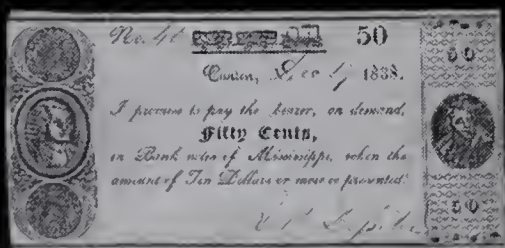 No. 50
Canton, Dec 1838.
50
I promise to pay the bearer, on demand,
Fifty Cents,
in Bank notes of Mississippi, when the
amount of Ten Dollars or more is presented.
50